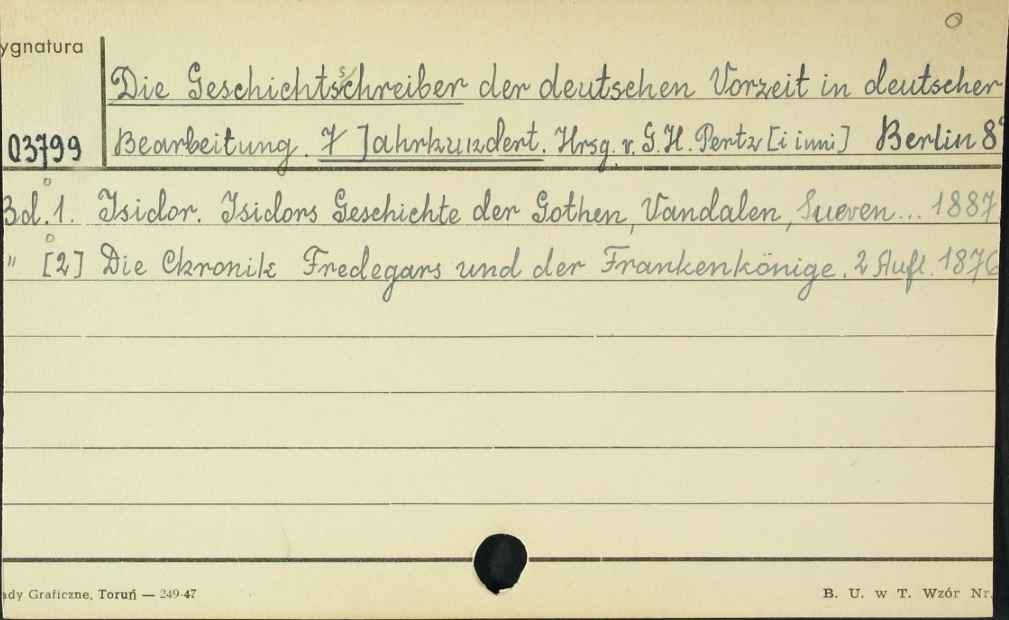 ygnatura
Die Geschichtschreiber der deutschen Vorzeit in deutscher
03799 Bearbeitung. 7 Jahrhundert. Hrsg. v. G. H. Pertz [i inni] Berlin 8°
Bd. 1. Isidor. Isidors Geschichte der Gothen, Vandalen, Sueven... 1887
" [2] Die Chronik Fredegars und der Frankenkönige. 2 Aufl. 1876
ady Graficzne, Toruń — 249-47
B. U. w T. Wzór Nr.